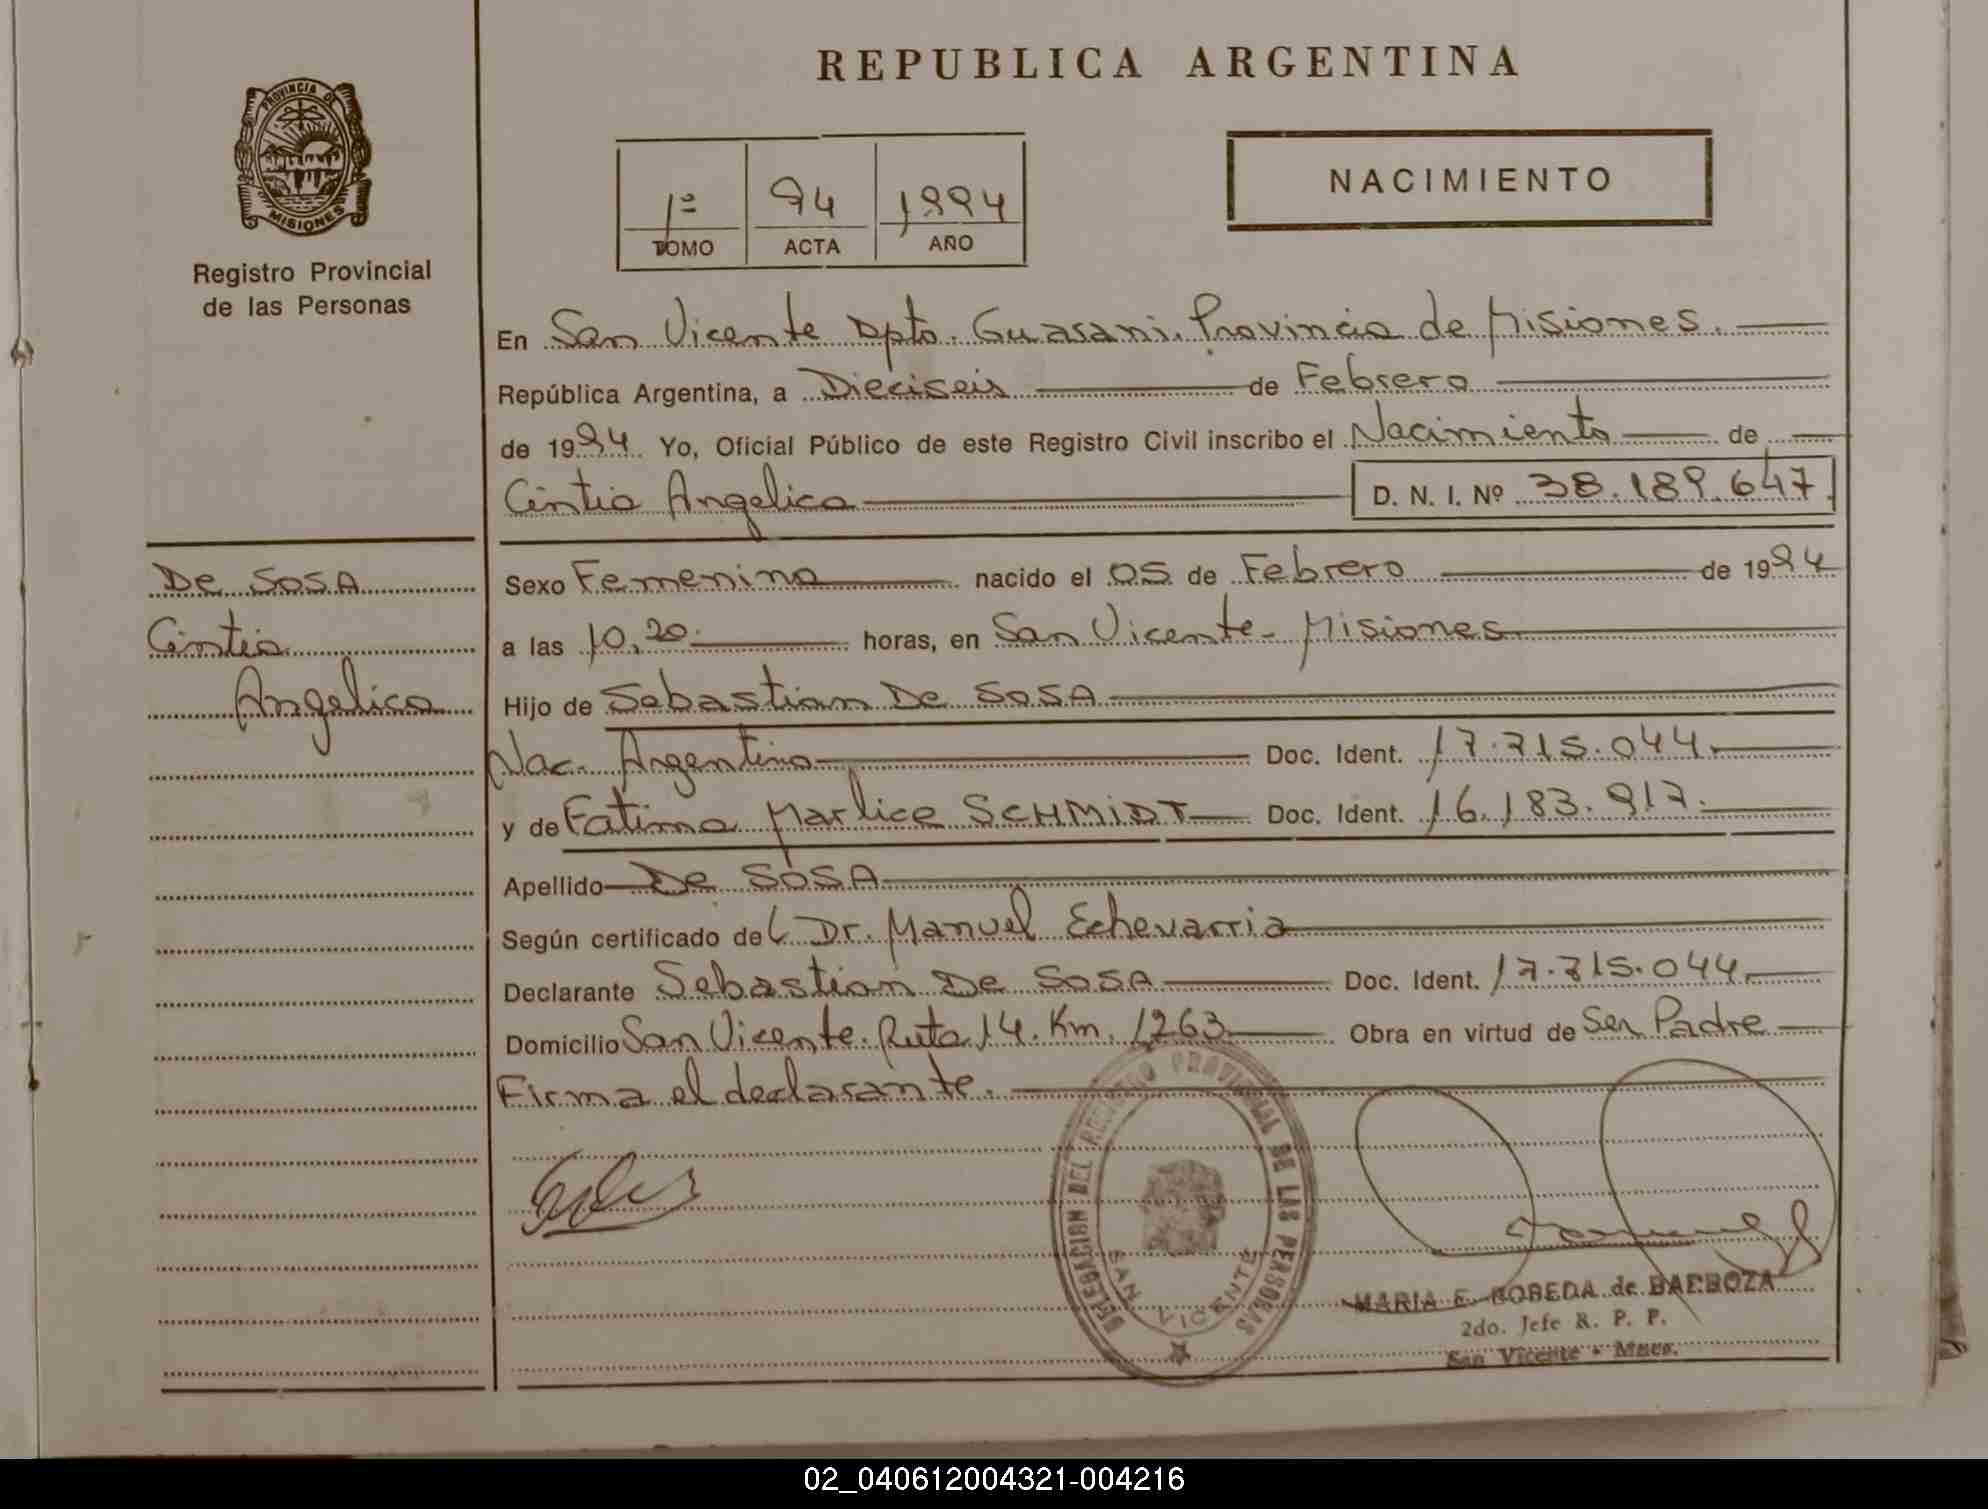 REPUBLICA ARGENTINA
PROVINCIA DE
MISIONES
Registro Provincial
de las Personas
1º 94 1994
TOMO ACTA AÑO
NACIMIENTO
En San Vicente Dpto. Guarani. Provincia de Misiones.
República Argentina, a Dieciseis de Febrero
de 1994 Yo, Oficial Público de este Registro Civil inscribo el Nacimiento de
Cintia Angelica D. N. I. Nº 38.189.647
De SOSA
Cintia
Angelica
Sexo Femenino nacido el 05 de Febrero de 1994
a las 10,20 horas, en San Vicente - Misiones
Hijo de Sebastian De SOSA
Nac. Argentino Doc. Ident. 17.715.044.
y de Fatima Marlice SCHMIDT Doc. Ident. 16.183.917.
Apellido De SOSA
Según certificado del Dr. Manuel Echevarria
Declarante Sebastian De SOSA Doc. Ident. 17.715.044
Domicilio San Vicente. Ruta 14. Km. 1263 Obra en virtud de Ser Padre
Firma el declarante.
DELEGACION DEL REGISTRO PROVINCIAL DE LAS PERSONAS
SAN VICENTE
MARIA E. de BARBOZA
2do. Jefe R. P. P.
San Vicente - Mnes.
02_040612004321-004216